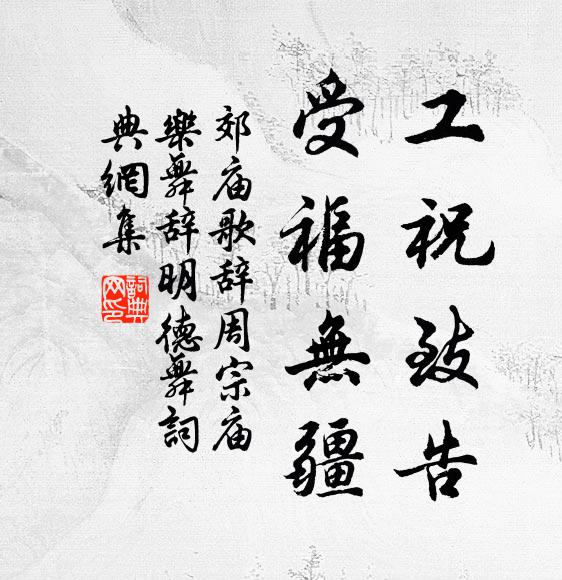 工祝致告
受福無疆
郊庙歌辞周宗庙
樂舞辞明德舞詞
典網集
詞典網印